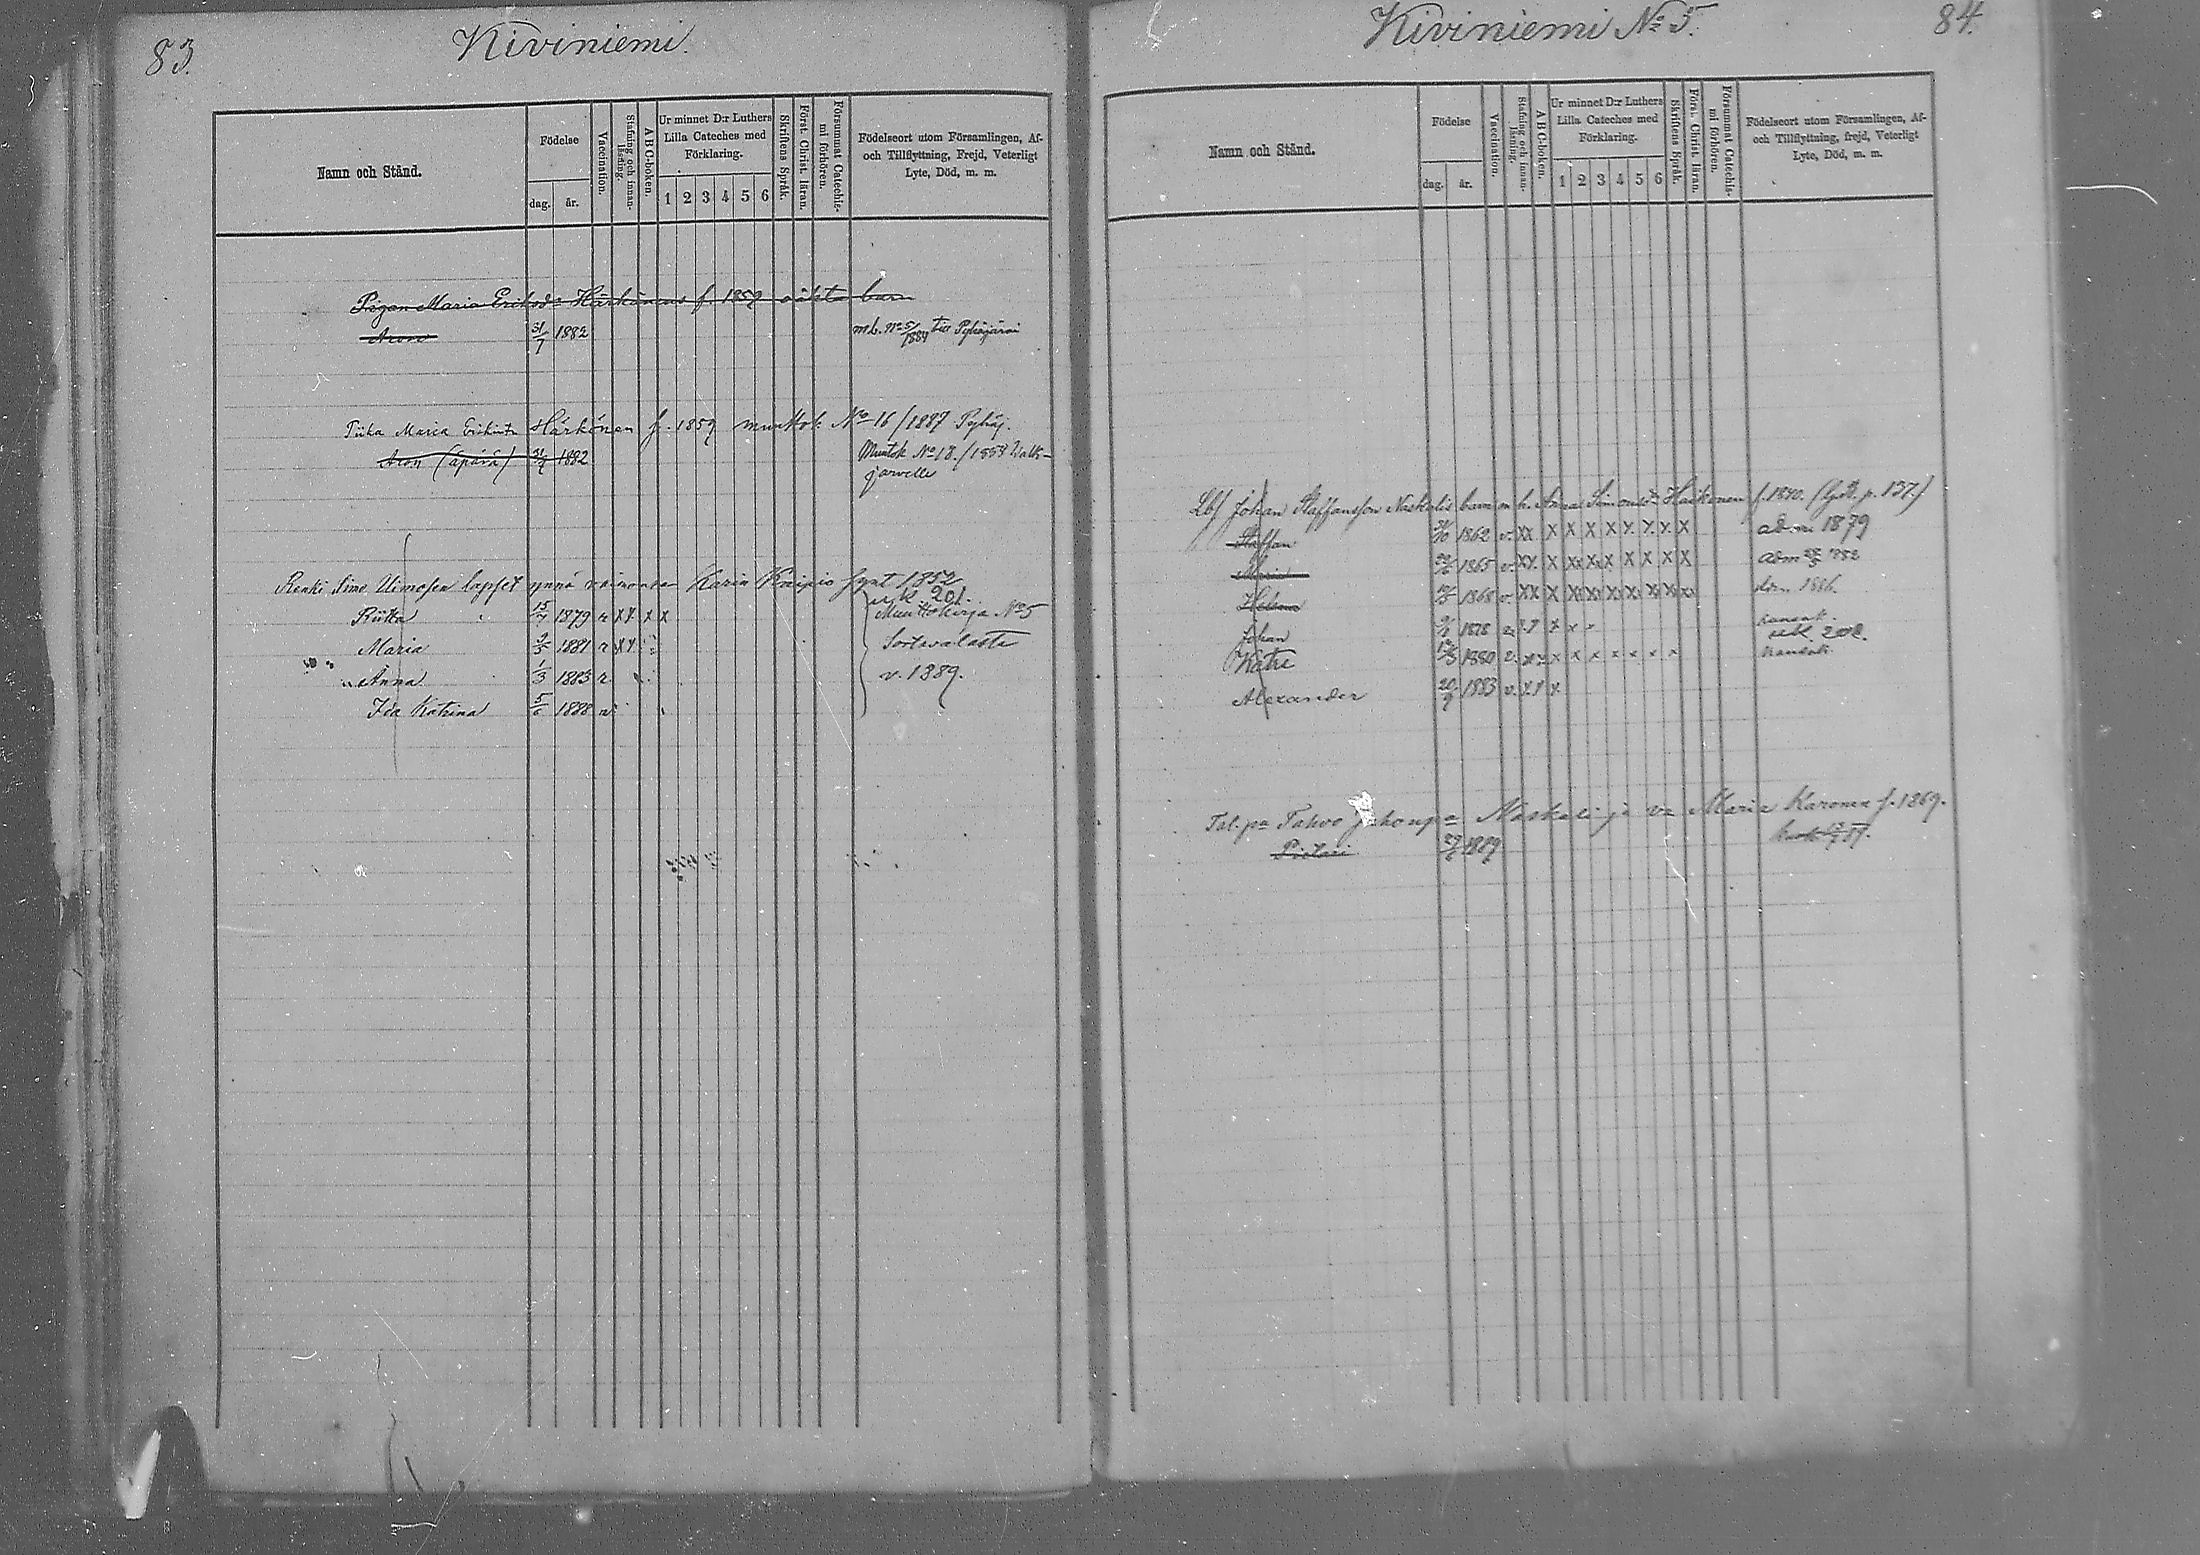 83.
Kiviniemi.
Namn och Stånd.
Födelse
dag.
år.
Vaccination.
Stafning och innan-
läsning.
A B C-boken.
Ur minnet D:r Luthers
Lilla Cateches med
Förklaring.
1 2 3 4 5 6
Skriftens Språk.
Först. Christ. läran.
Försummat Catechis-
mi förhören.
Födelseort utom Församlingen, Af-
och Tillflyttning, Frejd, Veterligt
Lyte, Död, m. m.
Pigan Maria Eriksdr Härkönens f. 1859 oäkta barn
Aron 31/7 1882 mb. No 5/1884 till Pyhäjärvi
Piika Maria Erikint. Härkönen f. 1859 muuttok. No 16/1887 Pyhäj.
Aron (äpärä) 31/7 1882 Muutok No 18./1883 Walk-
järvelle
Renki Simo Uimosen lapset ynnä vaimonsa Karin Kaipio synt 1852
uk. 201.
Riitta 15/4 1879 r x x x x Muuttokirja No 5
Maria 1881 r x x Sortavalasta
Anna 1/3 1883 r. v. 1889.
Ida Katrina 5/6 1888 r
Kiviniemi No 5.
84.
Namn och Stånd.
Födelse
dag.
år.
Vaccination.
Stafning och innan-
läsning.
A B C-boken.
Ur minnet D:r Luthers
Lilla Cateches med
Förklaring.
1 2 3 4 5 6
Skriftens Språk.
Först. Christ. läran.
Försummat Catechis-
mi förhören.
Födelseort utom Församlingen, Af-
och Tillflyttning, frejd, Veterligt
Lyte, Död, m. m.
Lbf Johan Staffansson Naskalis barn m. h. Anna Simonsdr Haikonen f. 1840. (p. 137.)
Staffan 1862 v. x x x x x x x x x x adm 1879
Maria 1865 v. x x x x x x x x x x adm 1882
Helena 1868 v. x x x x x x x x x x adm. 1886.
Johan 1878 x x x x
uk. 208.
Katri 1880 v. x x x x x x x x x
Alexander 20/9 1883 v. x x x
Tal. pa Tahvo Juhonpa Naskali ja va Maria Karonen f. 1869.
Pietari 1889